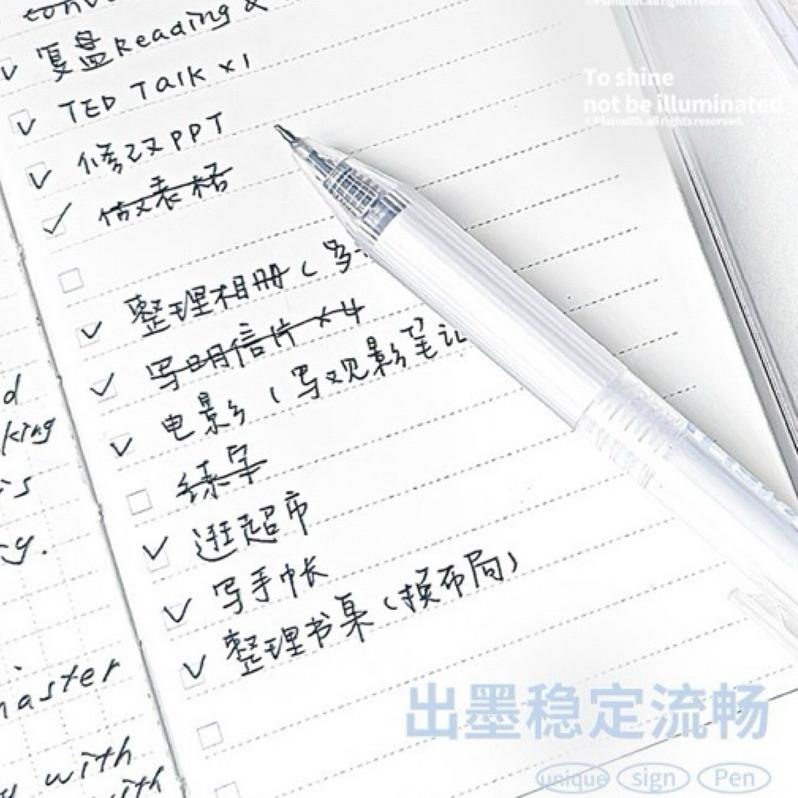 复盘Reading &
TED Talk ×1
修改PPT
做表格
整理相册(
写明信片 ×4
电影(写观影笔记
练字
逛超市
写手帐
整理书桌(换布局)
d
king
is
y.
master
with
with
To shine
not be illuminated
©Planwith.all rights reserved.
出墨稳定流畅
unique sign Pen